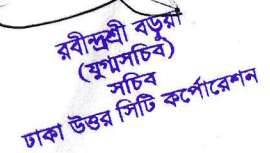 রবীন্দ্রশ্রী বড়ুয়া
(যুগ্মসচিব)
সচিব
ঢাকা উত্তর সিটি কর্পোরেশন